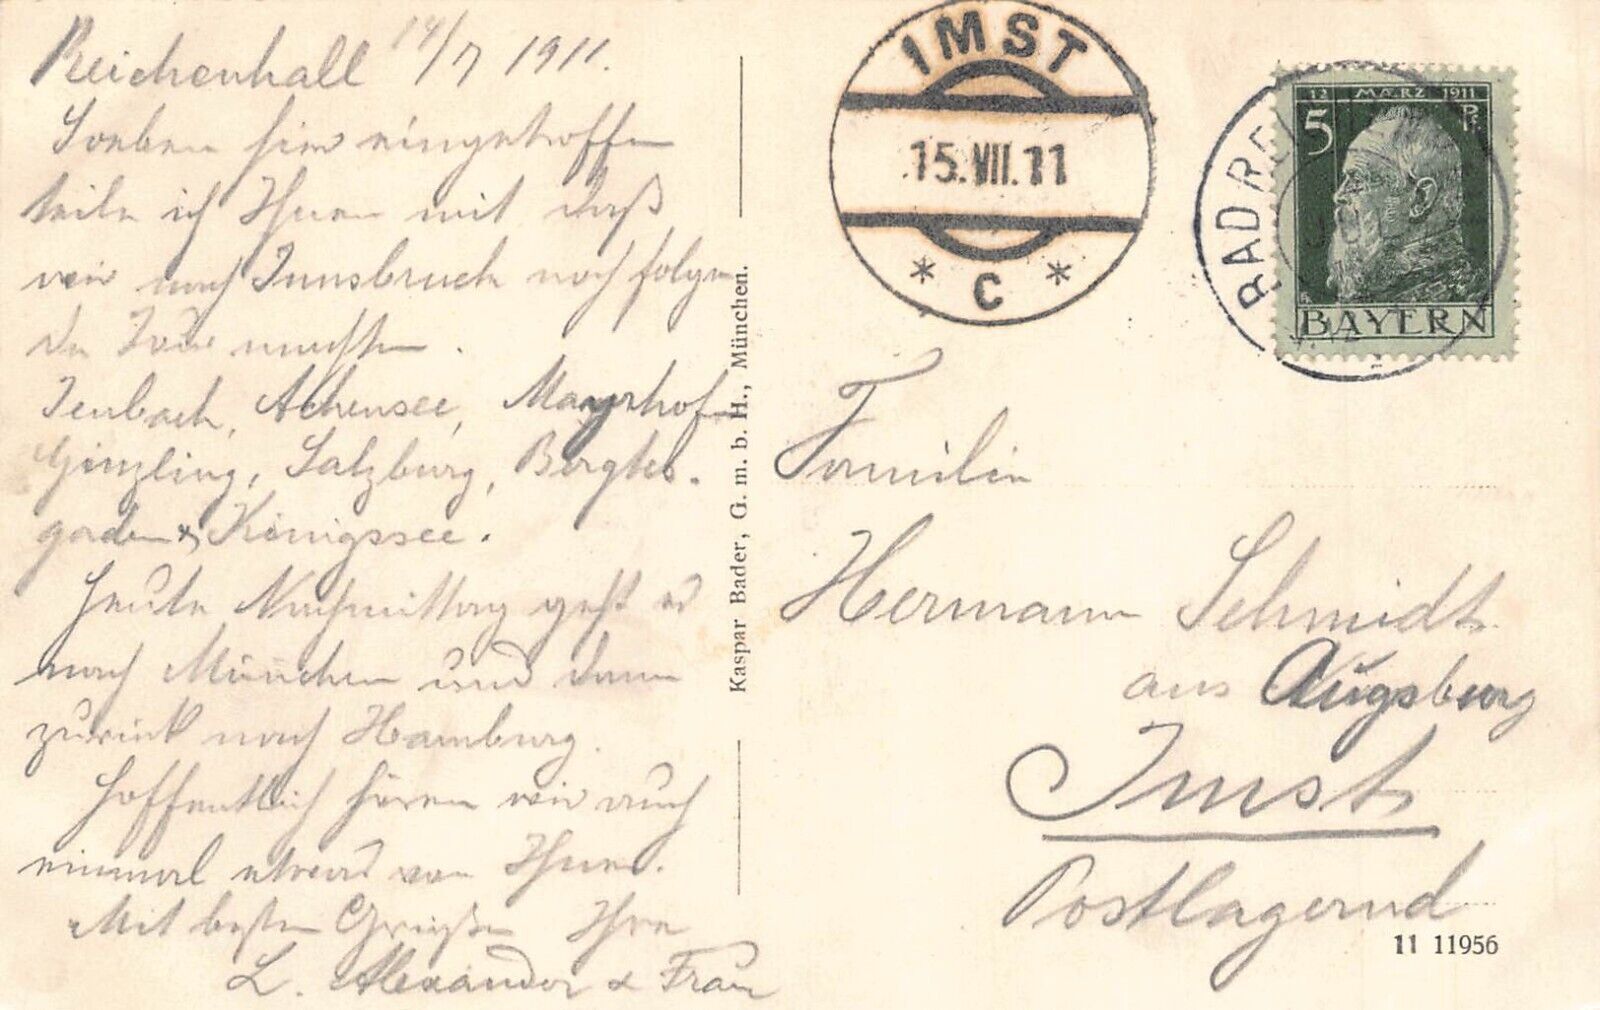 Reichenhall 14/7 1911.
Soeben hier eingetroffen
teile ich Ihnen mit daß
wir nach Innsbruck noch folgen
de Tour machten.
Jenbach, Achensee, Mayrhof
Ginzling, Salzburg, Bergtes-
gaden & Königssee.
Heute Nachmittag geht es
nach München und dann
zurück nach Hamburg.
Hoffentlich hören wir auch
einmal etwas von Ihnen.
Mit besten Grüßen Ihre
L. Alexander & Frau
Kaspar Bader, G. m. b. H., München.
IMST
15.VII.11
* C *
BAD RE
12 MÄRZ 1911
5 Pf
BAYERN
Familie
Hermann Schmidt
aus Augsburg
Imst
Postlagernd
11 11956